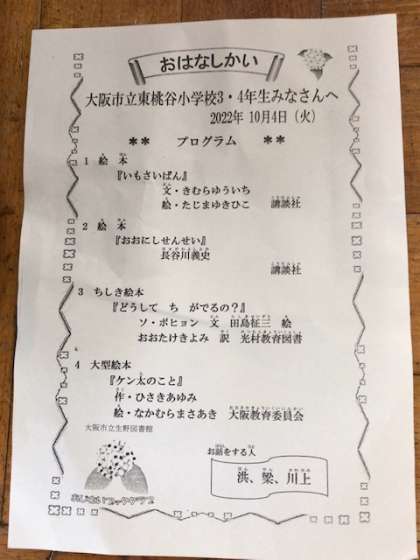 おはなしかい
大阪市立東桃谷小学校3・4年生みなさんへ
2022年 10月4日（火）
** プログラム **
1 絵本
『いもさいばん』
文・きむらゆういち
絵・たじまゆきひこ 講談社
2 絵本
『おおにしせんせい』
長谷川義史
講談社
3 ちしき絵本
『どうして ち がでるの？』
ソ・ボヒョン 文 田島征三 絵
おおたけきよみ 訳 光村教育図書
4 大型絵本
『ケン太のこと』
作・ひさきあゆみ
絵・なかむらまさあき 大阪教育委員会
大阪市立生野図書館
お話をする人
洪、梁、川上